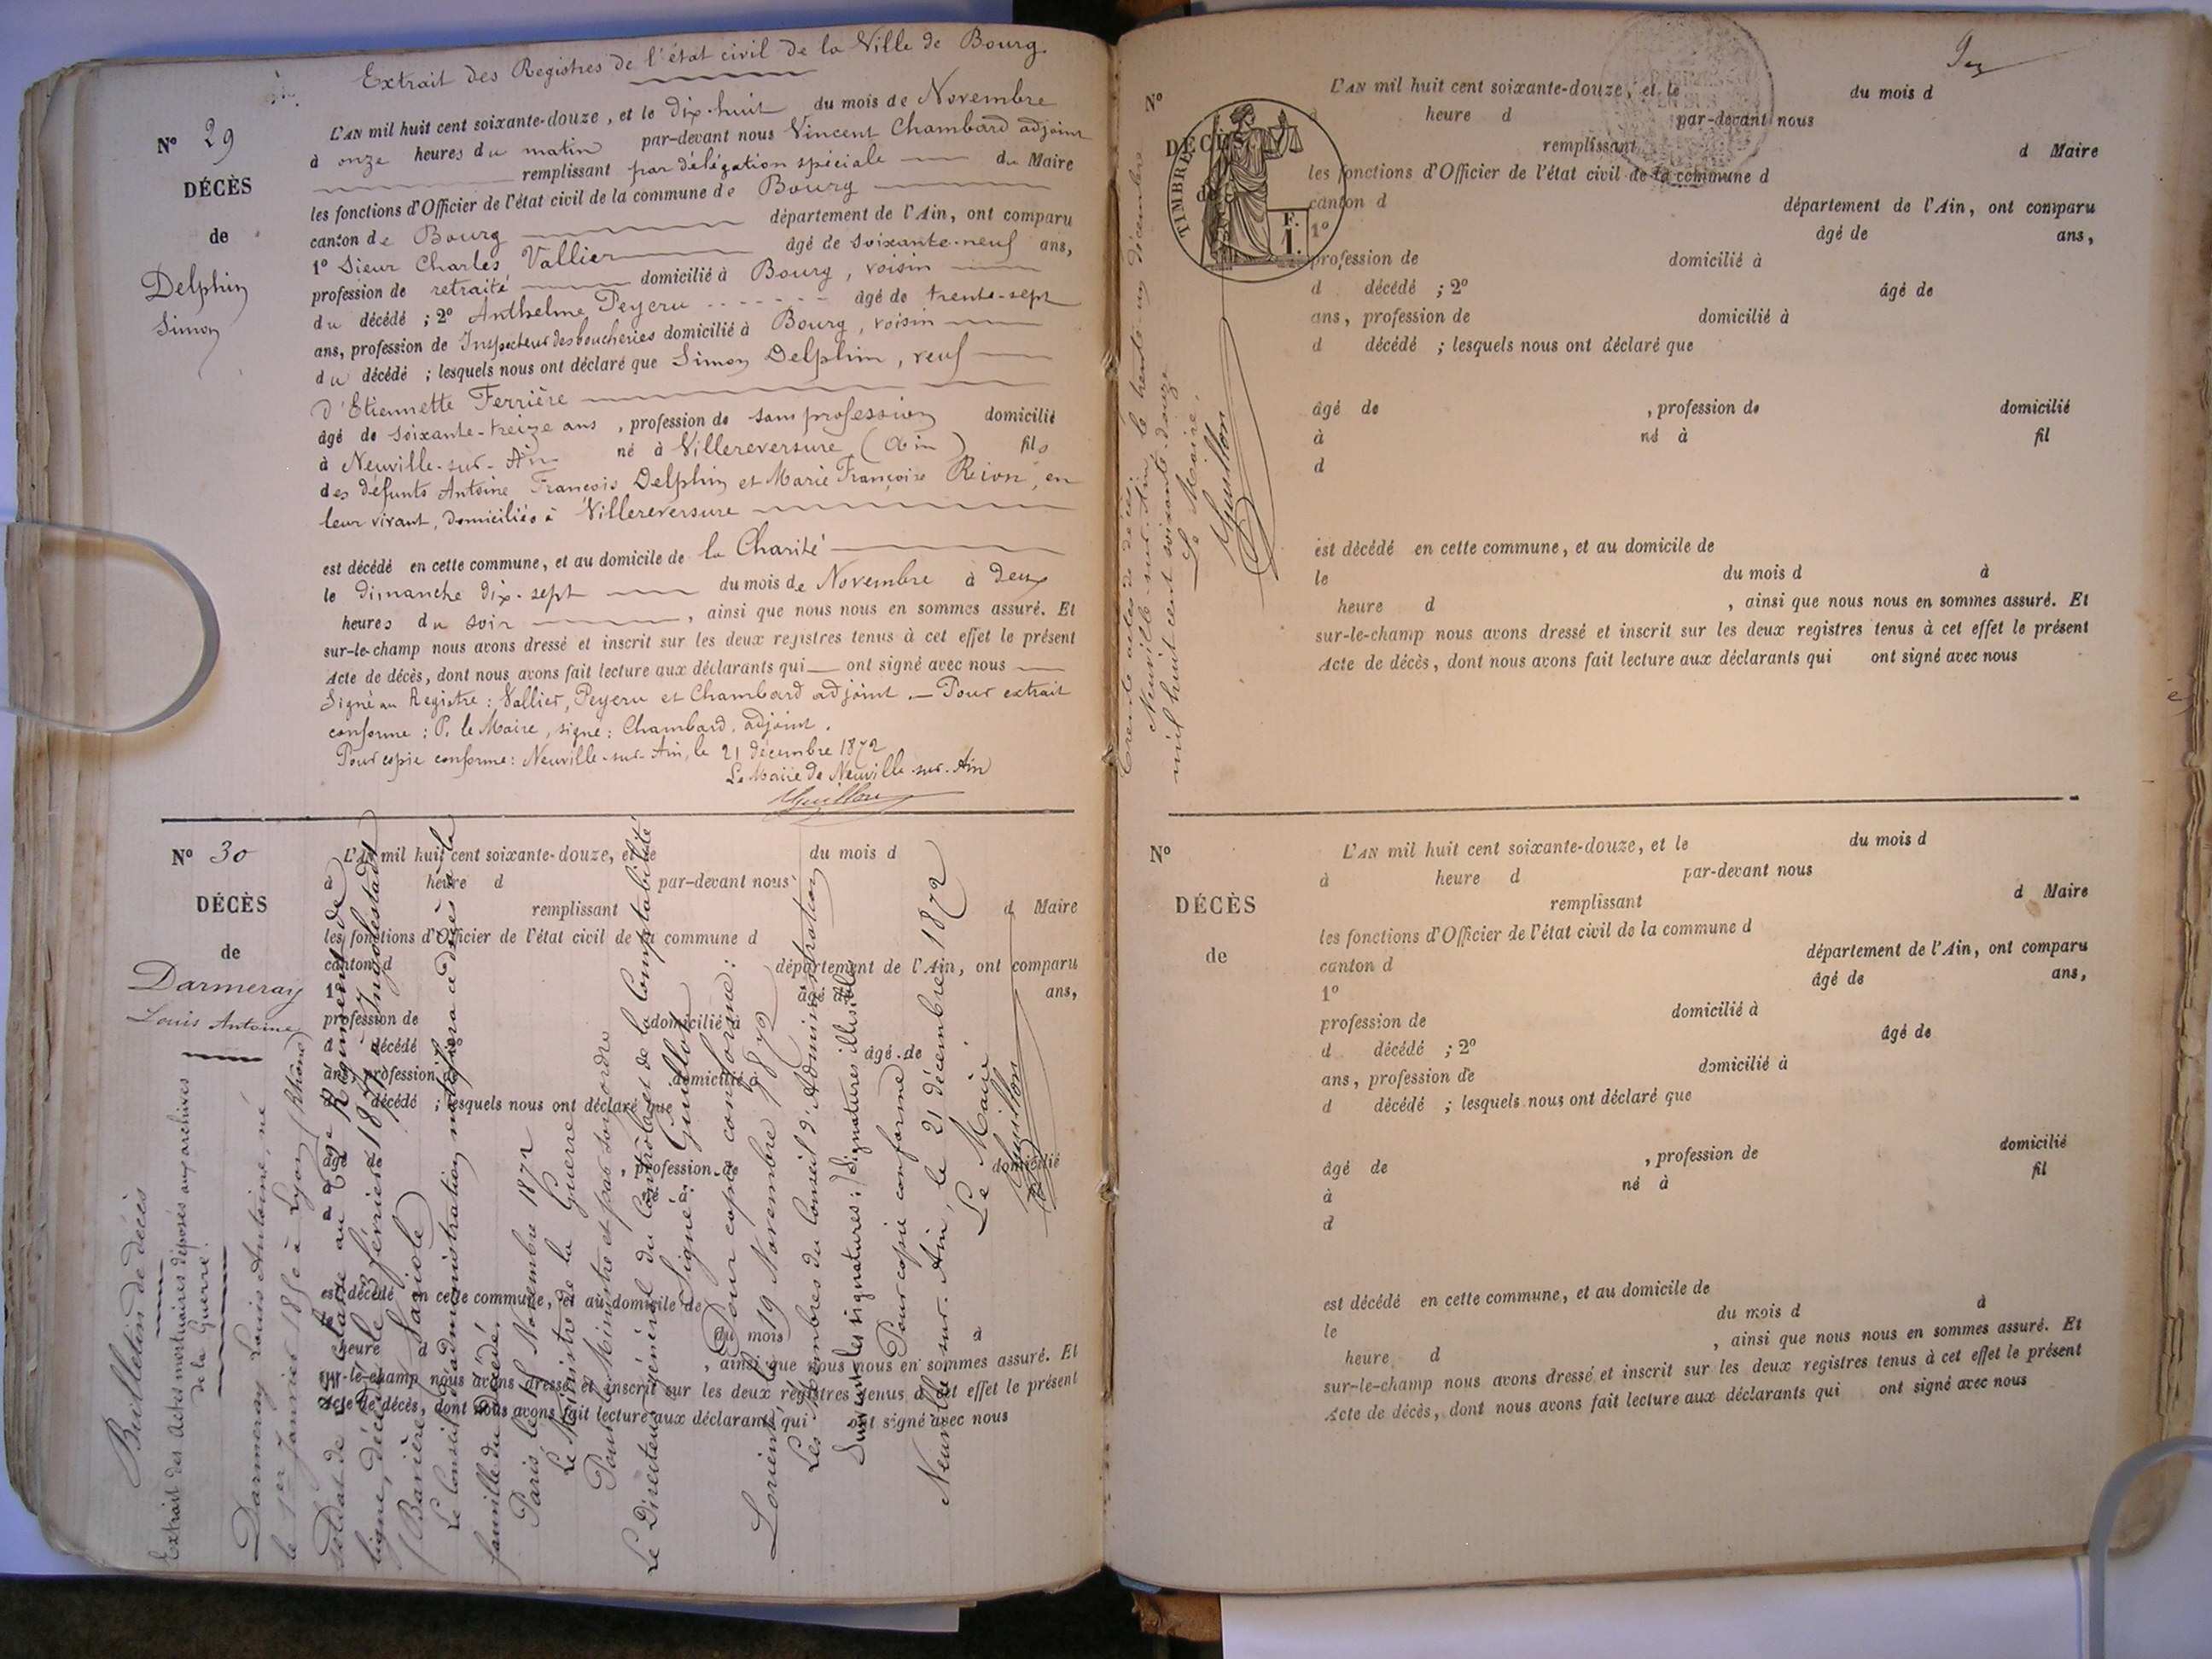 Extrait des Registres de l'état civil de la Ville de Bourg.
N° 29
DÉCÈS
de
Delphin
Simon
L'AN mil huit cent soixante-douze, et le dix-huit du mois de Novembre
à onze heures du matin par-devant nous Vincent Chambard adjoint
remplissant par délégation spéciale du Maire
les fonctions d'Officier de l'état civil de la commune de Bourg
canton de Bourg département de l'Ain, ont comparu
1° Sieur Charles Vallier âgé de soixante-neuf ans,
profession de retraité domicilié à Bourg, voisin
du décédé ; 2° Anthelme Peyeru âgé de trente-sept
ans, profession de Inspecteur des boucheries domicilié à Bourg, voisin
du décédé ; lesquels nous ont déclaré que Simon Delphin, veuf
d'Etiennette Ferrière
âgé de soixante-treize ans, profession de sans profession domicilié
à Neuville-sur-Ain né à Villereversure (Ain) fils
des défunts Antoine François Delphin et Marie Françoise Rion, en
leur vivant, domiciliés à Villereversure
est décédé en cette commune, et au domicile de la Charité
le dimanche dix-sept du mois de Novembre à deux
heures du soir, ainsi que nous nous en sommes assuré. Et
sur-le-champ nous avons dressé et inscrit sur les deux registres tenus à cet effet le présent
Acte de décès, dont nous avons fait lecture aux déclarants qui ont signé avec nous
Signé au Registre : Vallier, Peyeru et Chambard adjoint. — Pour extrait
conforme : P. le Maire, signé : Chambard, adjoint.
Pour copie conforme : Neuville-sur-Ain, le 21 décembre 1872
Le Maire de Neuville-sur-Ain
Guillon
N° 30
DÉCÈS
de
Darmeray
Louis Antoine
L'AN mil huit cent soixante-douze, et le du mois d
à heure d par-devant nous
remplissant d Maire
les fonctions d'Officier de l'état civil de la commune d
canton d département de l'Ain, ont comparu
1° âgé de ans,
profession de domicilié à
d décédé ; 2° âgé de
ans, profession de domicilié à
d décédé ; lesquels nous ont déclaré que
âgé de , profession de domicilié
à né à
est décédé en cette commune, et au domicile de
le du mois à
heure d , ainsi que nous nous en sommes assuré. Et
sur-le-champ nous avons dressé et inscrit sur les deux registres tenus à cet effet le présent
Acte de décès, dont nous avons fait lecture aux déclarants qui ont signé avec nous
Bulletin de décès
Extrait des actes mortuaires déposés aux archives
de la Guerre.
Darmeray Louis Antoine, né
le 1er Janvier 1850 à Lyon (Rhône)
soldat de classe au Régiment de
ligne, décédé le février 1871 à Ingolestadt
(Bavière)
Le Conseil d'administration notifiera ce décès à la
famille du décédé.
Paris, le Novembre 1872
Le Ministre de la Guerre
Pour le Ministre et par son ordre
Le Directeur général du Contrôle et de la Comptabilité
Signé : Guillot
Pour copie conforme :
Lorient, le 19 Novembre 1872
Les Membres du Conseil d'Administration
Suivent les signatures : (Signatures illisibles)
Pour copie conforme
Neuville-sur-Ain, le 21 décembre 1872
Le Maire
Guillon
trente actes de décès.
Neuville-sur-Ain, le trente un décembre
mil huit cent soixante-douze
Le Maire,
Guillon
TIMBRE
F.
1.
N°
DÉCÈS
de
L'AN mil huit cent soixante-douze, et le du mois d
heure d par-devant nous
remplissant d Maire
les fonctions d'Officier de l'état civil de la commune d
canton d département de l'Ain, ont comparu
1° âgé de ans,
profession de domicilié à
d décédé ; 2° âgé de
ans, profession de domicilié à
d décédé ; lesquels nous ont déclaré que
âgé de , profession de domicilié
à né à fil
d
est décédé en cette commune, et au domicile de
le du mois d à
heure d , ainsi que nous nous en sommes assuré. Et
sur-le-champ nous avons dressé et inscrit sur les deux registres tenus à cet effet le présent
Acte de décès, dont nous avons fait lecture aux déclarants qui ont signé avec nous
N°
DÉCÈS
de
L'AN mil huit cent soixante-douze, et le du mois d
à heure d par-devant nous
remplissant d Maire
les fonctions d'Officier de l'état civil de la commune d
canton d département de l'Ain, ont comparu
1° âgé de ans,
profession de domicilié à
d décédé ; 2° âgé de
ans, profession de domicilié à
d décédé ; lesquels nous ont déclaré que
âgé de , profession de domicilié
à né à fil
d
est décédé en cette commune, et au domicile de
le du mois d à
heure d , ainsi que nous nous en sommes assuré. Et
sur-le-champ nous avons dressé et inscrit sur les deux registres tenus à cet effet le présent
Acte de décès, dont nous avons fait lecture aux déclarants qui ont signé avec nous